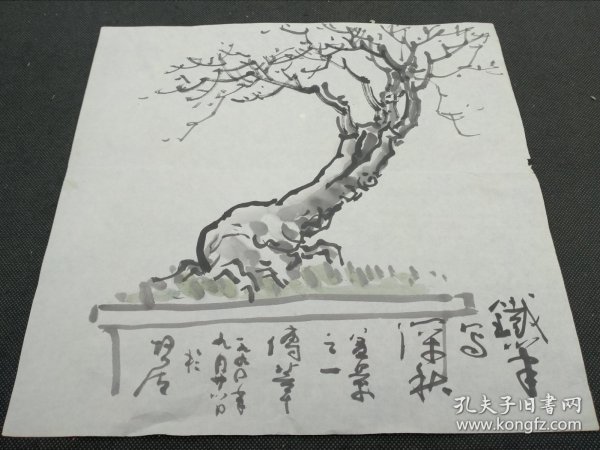 鐵筆
写
深秋
盆景
之一
傅華
一九九〇年
九月廿八日
於
孔夫子旧书网
www.kongfz.com